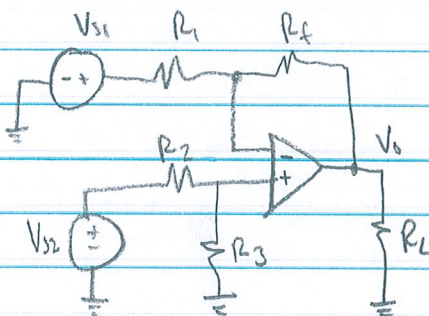 Vs1 R1 Rf
- +
R2 - Vo
+
Vs2 + - R3 RL